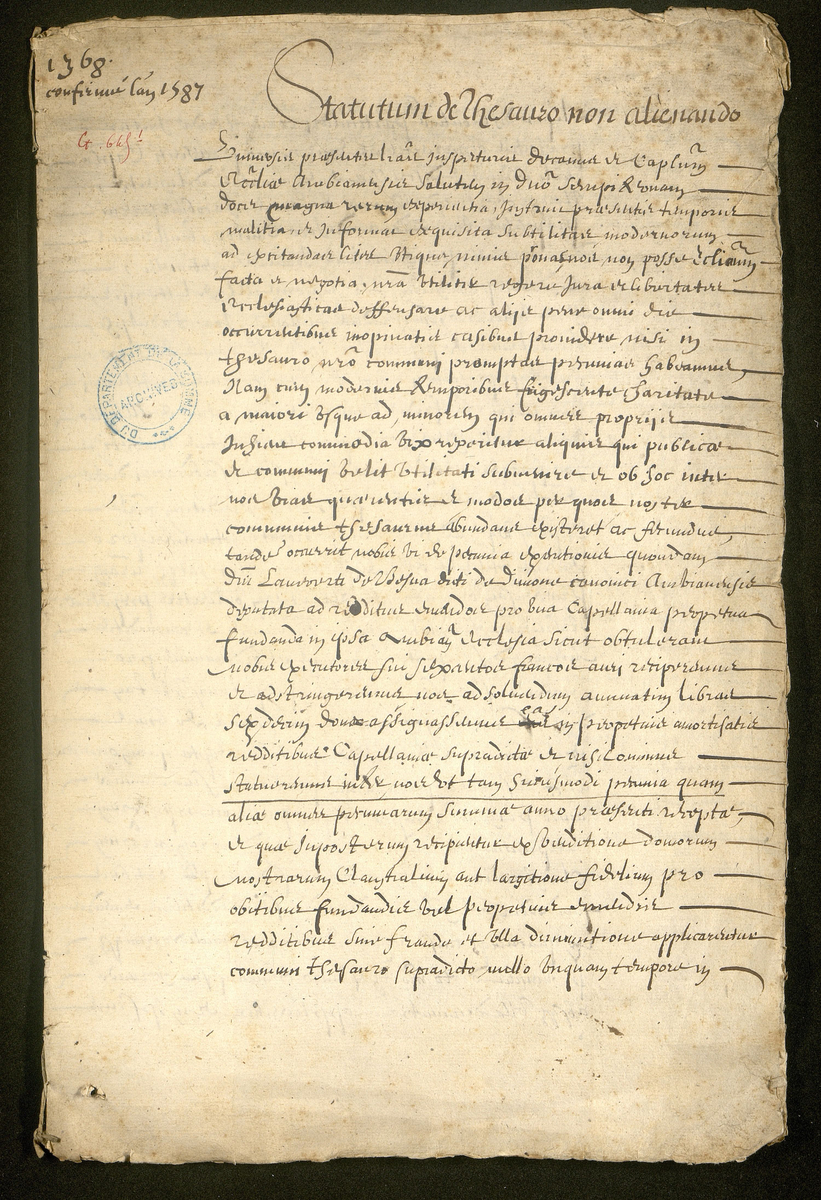 1368.
confirmé l'an 1587
Statutum de Thesauro non alienando
DU DÉPARTEMENT DE LA SOMME
ARCHIVES
Universis præsentes lr̃as inspecturis Decanus et Caplum̃
Ecc̃liæ Ambianensis salutem in Dnõ
docet magna rerum experientia, Instruit præsentis temporis
malitia et Informat exquisita subtilitas modernorum
ad excitandas lites nimis non posse
facta et negotia nr̃a utiliter regere Jura et libertates
Ecclesiasticas deffensare ac aliis pene omni die
occurrentibus inopinatis casibus providere nisi in
thesauro nr̃o communi promptas pecunias habeamus,
Nam cum modernis temporibus frigescente charitate
a maiori usque ad minorem qui omnes propriis
Inhiant commodis vix reperitur aliquis qui publicæ
et communi velit utilitati subvenire et ob hoc inter
nos vias quærentes et modos per quos noster
communis thesaurus abundans existeret ac fecundus,
tandẽ occurrit nobis ut de pecunia executionis quondam
Dñi Laurentii de dicti de Divione canonici Ambianensis
deputata ad redditus emendos pro una Capellania perpetua
fundanda in ipsa Ambiañ Ecclesia sicut obtulerant
nobis executores sui sexcentos francos auri reciperemus
et adstringeremus nos ad solvendum annuatim libras
sexdecim donec assignassemus eas in perpetuis amortisatis
redditibus Capellaniæ supradictæ et nihilominus
statueremus inter nos ut tam huiusmodi pecunia quam
aliæ omnes pecuniarum summæ anno præsenti receptæ,
et quæ Inposterum recipientur ex venditione domorum
nostrarum Claustralium aut largitione fidelium pro
obitibus fundandis vel perpetuis emendis
redditibus sine fraude et ulla diminutione applicarentur
communi thesauro supradicto nullo unquam tempore in